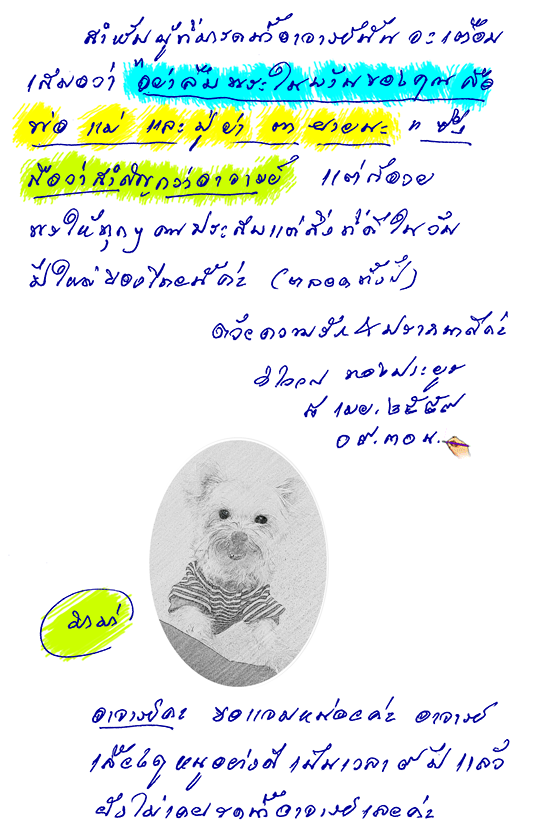 สำหรับผู้ที่มารดน้ำอาจารย์นั้น จะเตือน
เสมอว่า อย่าลืมพระในบ้านของคุณ คือ
พ่อ แม่ และ ปู่ ย่า ตา ยายนะ
ถือว่าสำคัญกว่าอาจารย์ แต่ก็อวย
พรให้ทุกๆ คนประสบแต่สิ่งที่ดี ในวัน
ปีใหม่ของไทยนี้ค่ะ (ตลอดทั้งปี)
ด้วยความรัก & ปรารถนาดีค่ะ
ลำใวล ทองประยูร
๘ เมย. ๒๕๕๗
๐๙.๓๐น.
อาจารย์คะ ขอแจมหน่อยค่ะ อาจารย์
เลี้ยงดู หนูอย่างดี เป็นเวลา ๙ ปี แล้ว
ยังไม่เคยรดน้ำอาจารย์เลยค่ะ